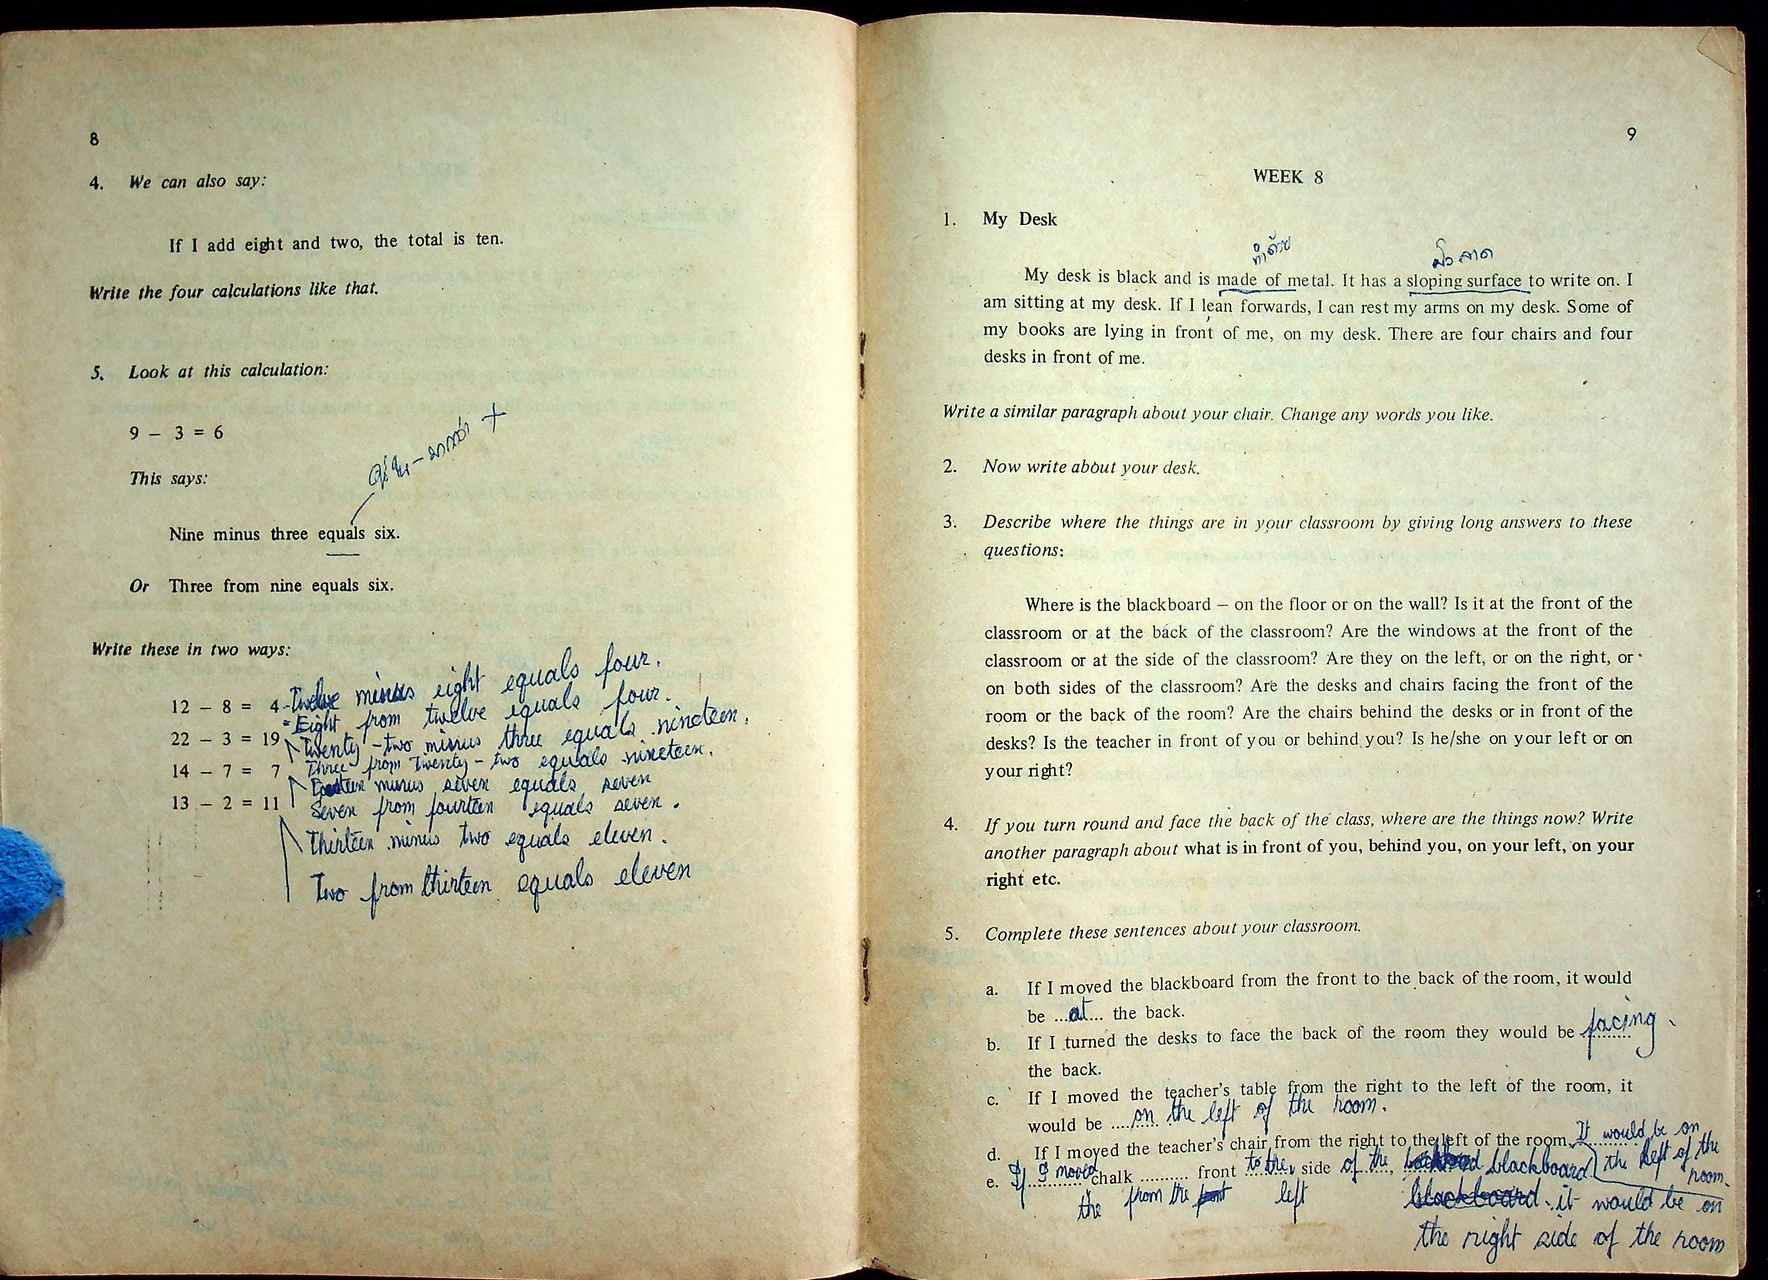 8
4. We can also say:
If I add eight and two, the total is ten.
Write the four calculations like that.
5. Look at this calculation:
9 – 3 = 6
This says:
Nine minus three equals six.
Or Three from nine equals six.
Write these in two ways:
12 – 8 = 4 - Twelve minus eight equals four.
= Eight from twelve equals four.
22 – 3 = 19 Twenty-two minus three equals nineteen.
Three from Twenty-two equals nineteen.
14 – 7 = 7 minus seven equals seven
Seven from fourteen equals seven.
13 – 2 = 11
Thirteen minus two equals eleven.
Two from thirteen equals eleven
9
WEEK 8
1. My Desk
ทำด้วย
My desk is black and is made of metal. It has a sloping surface to write on. I
am sitting at my desk. If I lean forwards, I can rest my arms on my desk. Some of
my books are lying in front of me, on my desk. There are four chairs and four
desks in front of me.
Write a similar paragraph about your chair. Change any words you like.
2. Now write about your desk.
3. Describe where the things are in your classroom by giving long answers to these
questions:
Where is the blackboard – on the floor or on the wall? Is it at the front of the
classroom or at the back of the classroom? Are the windows at the front of the
classroom or at the side of the classroom? Are they on the left, or on the right, or
on both sides of the classroom? Are the desks and chairs facing the front of the
room or the back of the room? Are the chairs behind the desks or in front of the
desks? Is the teacher in front of you or behind you? Is he/she on your left or on
your right?
4. If you turn round and face the back of the class, where are the things now? Write
another paragraph about what is in front of you, behind you, on your left, on your
right etc.
5. Complete these sentences about your classroom.
a. If I moved the blackboard from the front to the back of the room, it would
be ...at... the back.
b. If I turned the desks to face the back of the room they would be facing
the back.
c. If I moved the teacher's table from the right to the left of the room, it
would be .... on the left of the room.
d. If I moved the teacher's chair from the right to the left of the room It would be on
the left of the room.
e. If I moved chalk .......... front to the side of the blackboard
the from the left it would be on
the right side of the room